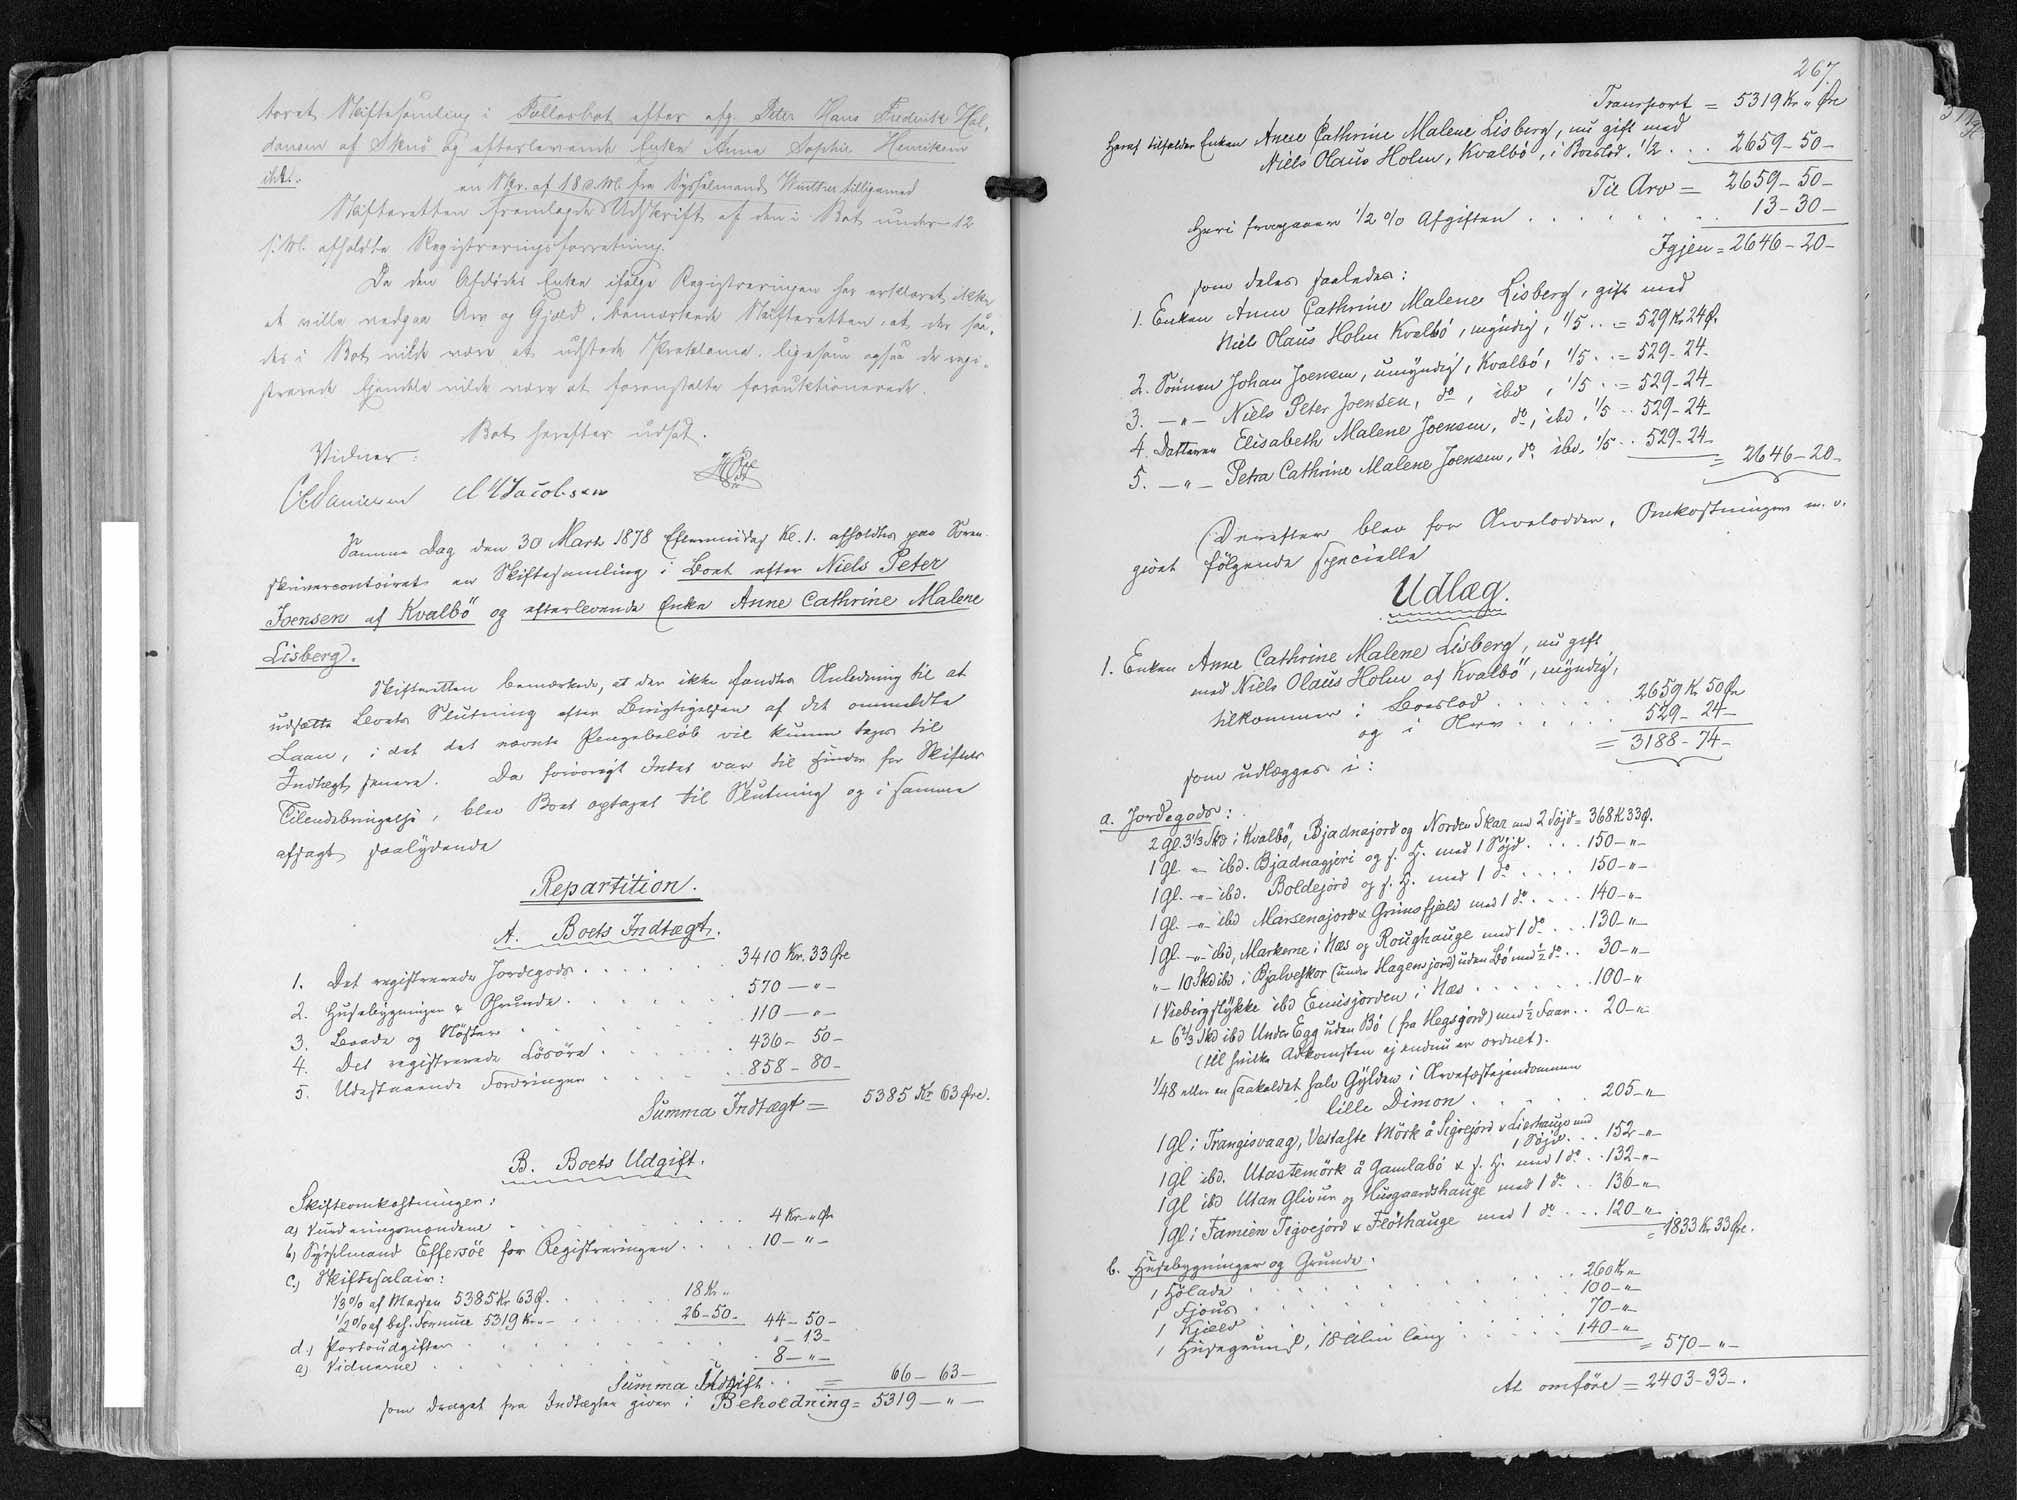 toret Skiftesamling i Fællesboet efter afg. Peter Hans Frederik Hol,
danem af Skuö og efterlevende Enke Anna Sophie Henriksen
ibd.
en Skr. af 18 d. M. fra Sysselmand Winther tilligemed
Skifteretten fremlagde Udskrift af den i Boet under 12
s. M. afholdte Registreringsforretning.
Da den Afdødes Enke ifølge Registreringen har erklæret ikke
at ville vedgaa Arv og Gjæld, bemærkede Skifteretten, at der saa,
des i Boet vilde være at udstede Proklama, ligesom ogsaa de regi,
strerede Ejendele vilde være at foranstalte forauktionerede.
Boet herefter udsat.
Vidner:
Danielsen Jacobsen
Samme Dag den 30 Marts 1878 Eftermiddag Kl. 1. afholdtes paa Soren-
skrivercontoiret en Skiftesamling i Boet efter Niels Peter
Joensen af Kvalbö og efterlevende Enke Anne Cathrine Malene
Lisberg.
Skifteretten bemærkede, at der ikke fandtes Anledning til at
udsætte Boets Slutning efter Berigtigelsen af det ommeldte
Laan, i det det nævnte Pengebeløb vil kunne tages til
Indtægt senere. Da forøvrigt Intet var til Hinder for Skiftets
Tilendebringelse, blev Boet optaget til Slutning og i samme
afsagt saalydende
Repartition.
A. Boets Indtægt.
1. Det registrerede Jordegods . . . 3410 Kr. 33 Øre
2. Husebygninger & Grunde . . . 570 — " —
3. Baade og Nöster . . . 110 — " —
4. Det registrerede Lösöre . . . 436 — 50 —
5. Udestaaende Fordringer . . . 858 — 80 —
Summa Indtægt = 5385 Kr 63 Øre.
B. Boets Udgift.
Skifteomkostninger:
a) Vurderingsmændene . . . 4 Kr — " Ør
b) Sysselmand Effersöe for Registreringen . . . 10 — " —
c.) Skiftesalair:
1/3 % af Massen 5385 Kr 63 Ø. . . . 18 Kr "
1/2 % af beh. Formue 5319 Kr " — . . . 26 – 50 – 44 – 50 –
d.) Portoudgifter . . . " – 13 –
e) Vidnerne . . . 8 — " —
Summa Udgift . . = 66 – 63 –
som draget fra Indtægten giver i Beholdning = 5319 — " —
267.
Transport = 5319 Kr " Øre
Heraf tilfalder Enken Anne Cathrine Malene Lisberg, nu gift med
Niels Olaus Holm, Kvalbö, i Boeslod, 1/2 . . . 2659 – 50 –
Til Arv = 2659 – 50 –
Heri fragaaer 1/2 % Afgiften . . . 13 – 30 –
Igjen = 2646 – 20 –
som deles saaledes:
1. Enken Anne Cathrine Malene Lisberg, gift med
Niels Olaus Holm Kvalbö, myndig, 1/5 . . = 529 Kr 24 Ø.
2. Sönnen Johan Joensen, umyndig, Kvalbö, 1/5 . . = 529 – 24 –
3. — " — Niels Peter Joensen, do, ibd, 1/5 . . = 529 – 24 –
4. Datteren Elisabeth Malene Joensen, do, ibd, 1/5 . . 529 – 24 –
5. — " — Petra Cathrine Malene Joensen, do ibd, 1/5 . . 529 – 24 –
= 2646 – 20 –
Derefter blev for Arvelodder, Omkostninger m. v.
gjort følgende specielle
Udlæg.
1. Enken Anne Cathrine Malene Lisberg, nu gift
med Niels Olaus Holm af Kvalbö, myndig,
tilkommer i Boeslod . . . 2659 Kr 50 Øre
og i Arv . . . 529 – 24 –
= 3188 – 74 –
som udlægges i:
a. Jordegods:
2 Gl. 3 1/3 Sk. i Kvalbö, Bjadnajord og Norden Skar med 2 Söjd = 368 K 33 Ø.
1 Gl. – " – ibd. Bjadnagjeri og s. H. med 1 Söjd . . . 150 – " –
1 Gl. – " – ibd. Boldejord og s. H. med 1 do . . . 150 – " –
1 Gl. – " – ibd Marsenajord & Grimsfjæld med 1 do . . . 140 – " –
1 Gl. – " – ibd, Markerne i Næs og Roughauge med 1 do . . . 130 – " –
" – 10 Sk ibd, i Bjalveskor (under Hagensjord) uden Bö med 1/2 do . . 30 – " –
1 Viebergstykke ibd Emisjorden i Næs . . . 100 – "
" 6 2/3 Sk ibd Under Egg uden Bö (fra Hegsjord) med 1/2 Faar . . 20 – " –
(til hvilke Adkomsten ej endnu er ordnet).
1/48 eller en saakaldet halv Gylden i Arvefæstejendommen
lille Dimon . . . 205 – " –
1 Gl i Trangisvaag, Vestaste Mörk å Sigrejord & Lierhauge med
1 Söjd . . . 152 – " –
1 Gl ibd. Utastemörk å Gamlabö & s. H. med 1 do . . 132 – " –
1 Gl ibd Utan Glivur og Husgaardshauge med 1 do . . 136 – " –
1 Gl i Famien Tigvejord & Flöthauge med 1 do . . . 120 – " –
= 1833 Kr 33 Øre.
b. Husebygninger og Grunde.
1 Hjölade . . . 260 Kr "
1 Fjous . . . 100 – " –
1 Kjæld . . . 70 – " –
1 Husegrund, 18 Alen lang . . . 140 – " –
= 570 – " –
At omföre = 2403 – 33 – .